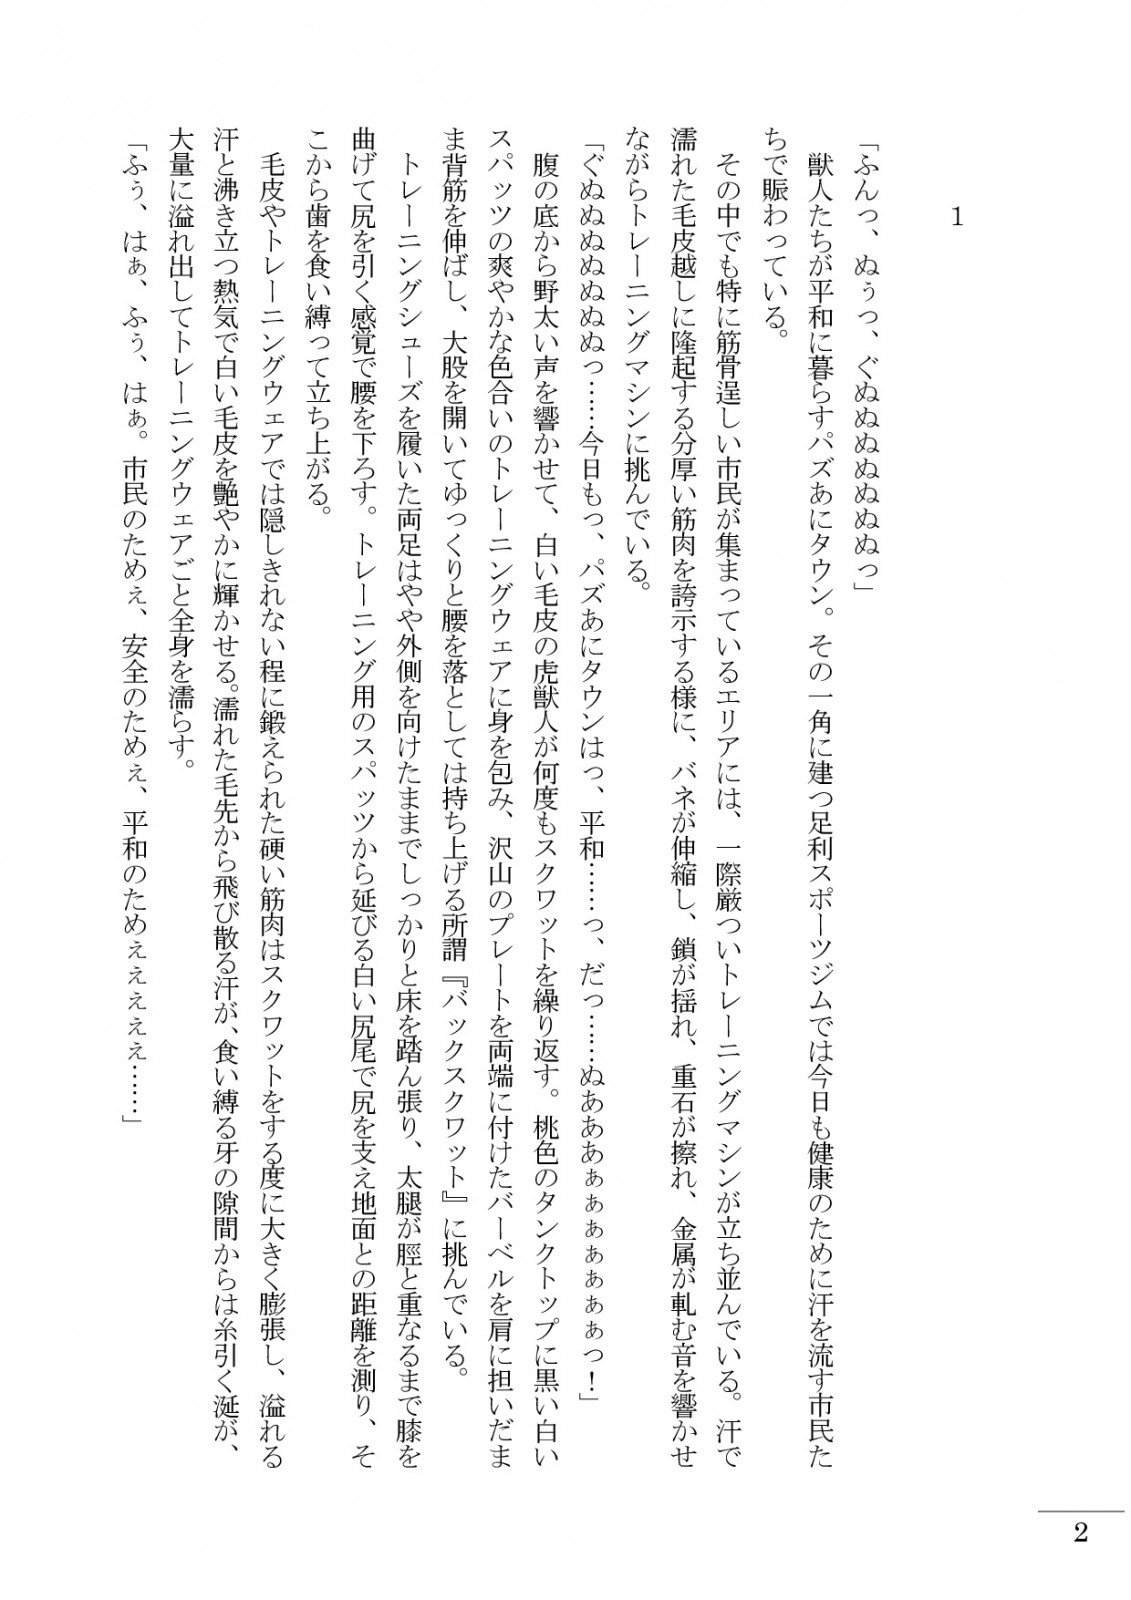 1
「ふんっ、ぬぅっ、ぐぬぬぬぬぬぬぬっ」
獣人たちが平和に暮らすパズあにタウン。その一角に建つ足利スポーツジムでは今日も健康のために汗を流す市民た
ちで賑わっている。
その中でも特に筋骨逞しい市民が集まっているエリアには、一際厳ついトレーニングマシンが立ち並んでいる。汗で
濡れた毛皮越しに隆起する分厚い筋肉を誇示する様に、バネが伸縮し、鎖が揺れ、重石が擦れ、金属が軋む音を響かせ
ながらトレーニングマシンに挑んでいる。
「ぐぬぬぬぬぬぬぬっ……今日もっ、パズあにタウンはっ、平和……っ、だっ……ぬあああぁぁぁぁぁぁぁっ！」
腹の底から野太い声を響かせて、白い毛皮の虎獣人が何度もスクワットを繰り返す。桃色のタンクトップに黒い白い
スパッツの爽やかな色合いのトレーニングウェアに身を包み、沢山のプレートを両端に付けたバーベルを肩に担いだま
ま背筋を伸ばし、大股を開いてゆっくりと腰を落としては持ち上げる所謂『バックスクワット』に挑んでいる。
トレーニングシューズを履いた両足はやや外側を向けたままでしっかりと床を踏ん張り、太腿が脛と重なるまで膝を
曲げて尻を引く感覚で腰を下ろす。トレーニング用のスパッツから延びる白い尻尾で尻を支え地面との距離を測り、そ
こから歯を食い縛って立ち上がる。
毛皮やトレーニングウェアでは隠しきれない程に鍛えられた硬い筋肉はスクワットをする度に大きく膨張し、溢れる
汗と沸き立つ熱気で白い毛皮を艶やかに輝かせる。濡れた毛先から飛び散る汗が、食い縛る牙の隙間からは糸引く涎が、
大量に溢れ出してトレーニングウェアごと全身を濡らす。
「ふぅ、はぁ、ふぅ、はぁ。市民のためぇ、安全のためぇ、平和のためぇぇぇぇぇ……」
2